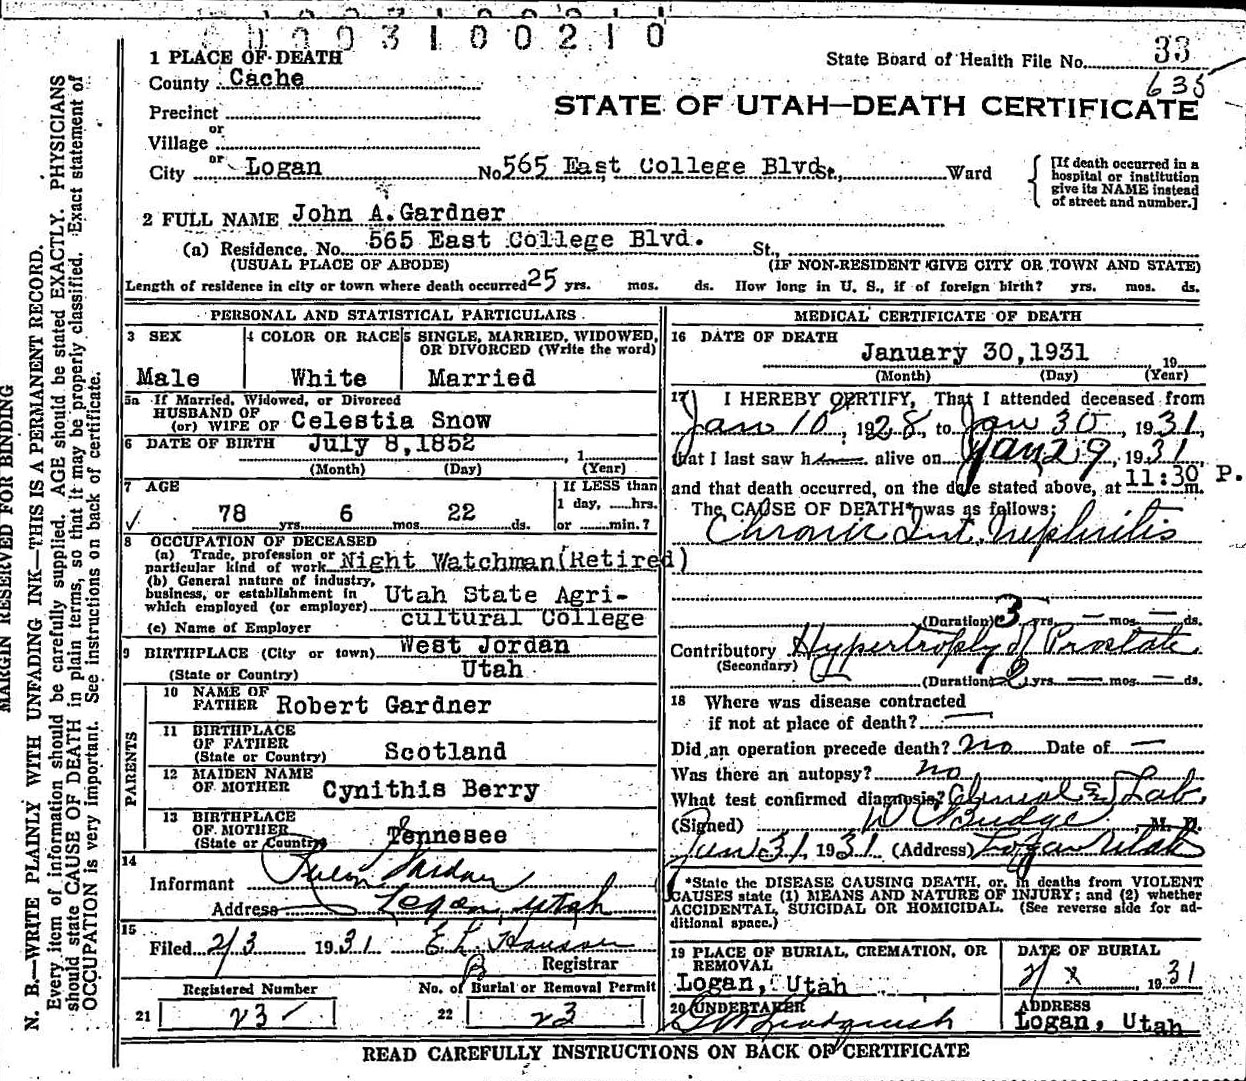 0003100210
1 PLACE OF DEATH
State Board of Health File No. 33
635
County Cache
STATE OF UTAH—DEATH CERTIFICATE
Precinct
or
Village
or
City Logan No. 565 East College Blvd. St., Ward
[If death occurred in a
hospital or institution
give its NAME instead
of street and number.]
2 FULL NAME John A. Gardner
(a) Residence. No. 565 East College Blvd. St.,
(USUAL PLACE OF ABODE) (IF NON-RESIDENT GIVE CITY OR TOWN AND STATE)
Length of residence in city or town where death occurred 25 yrs. mos. ds. How long in U. S., if of foreign birth? yrs. mos. ds.
PERSONAL AND STATISTICAL PARTICULARS
3 SEX
Male
4 COLOR OR RACE
White
5 SINGLE, MARRIED, WIDOWED,
OR DIVORCED (Write the word)
Married
5a If Married, Widowed, or Divorced
HUSBAND OF
(or) WIFE OF Celestia Snow
6 DATE OF BIRTH July 8, 1852, 1
(Month) (Day) (Year)
7 AGE
78 yrs. 6 mos. 22 ds.
If LESS than
1 day, hrs.
or min.?
8 OCCUPATION OF DECEASED
(a) Trade, profession or
particular kind of work Night Watchman (Retired)
(b) General nature of industry,
business, or establishment in
which employed (or employer) Utah State Agri-
cultural College
(c) Name of Employer
9 BIRTHPLACE (City or town) West Jordan
(State or Country) Utah
PARENTS
10 NAME OF
FATHER Robert Gardner
11 BIRTHPLACE
OF FATHER
(State or Country) Scotland
12 MAIDEN NAME
OF MOTHER Cynithis Berry
13 BIRTHPLACE
OF MOTHER
(State or Country) Tennesee
14
Informant Gardner
Address Logan, Utah
15
Filed 2/3 1931 E L Hansen
Registrar
Registered Number
21 23
No. of Burial or Removal Permit
22 23
MEDICAL CERTIFICATE OF DEATH
16 DATE OF DEATH
January 30, 1931 19
(Month) (Day) (Year)
17 I HEREBY CERTIFY, That I attended deceased from
Jan 10, 1928, to Jan 30, 1931,
that I last saw h alive on Jan 29, 1931
and that death occurred, on the date stated above, at 11:30 P. m.
The CAUSE OF DEATH* was as follows:
Chronic Int. Nephritis
(Duration) 3 yrs. — mos. — ds.
Contributory Hypertrophy of Prostate.
(Secondary)
(Duration) yrs. — mos. — ds.
18 Where was disease contracted
if not at place of death? —
Did an operation precede death? no Date of —
Was there an autopsy? no
What test confirmed diagnosis? Clinical & Lab.
(Signed) D C Budge M. D.
Jan 31, 1931. (Address) Logan Utah
*State the DISEASE CAUSING DEATH, or, in deaths from VIOLENT
CAUSES state (1) MEANS AND NATURE OF INJURY; and (2) whether
ACCIDENTAL, SUICIDAL OR HOMICIDAL. (See reverse side for ad-
ditional space.)
19 PLACE OF BURIAL, CREMATION, OR
REMOVAL
Logan, Utah
DATE OF BURIAL
2/ x 1931
20 UNDERTAKER
ADDRESS
Logan, Utah
READ CAREFULLY INSTRUCTIONS ON BACK OF CERTIFICATE
MARGIN RESERVED FOR BINDING
N. B.—WRITE PLAINLY WITH UNFADING INK—THIS IS A PERMANENT RECORD.
Every item of information should be carefully supplied. AGE should be stated EXACTLY. PHYSICIANS
should state CAUSE OF DEATH in plain terms, so that it may be properly classified. Exact statement of
OCCUPATION is very important. See instructions on back of certificate.